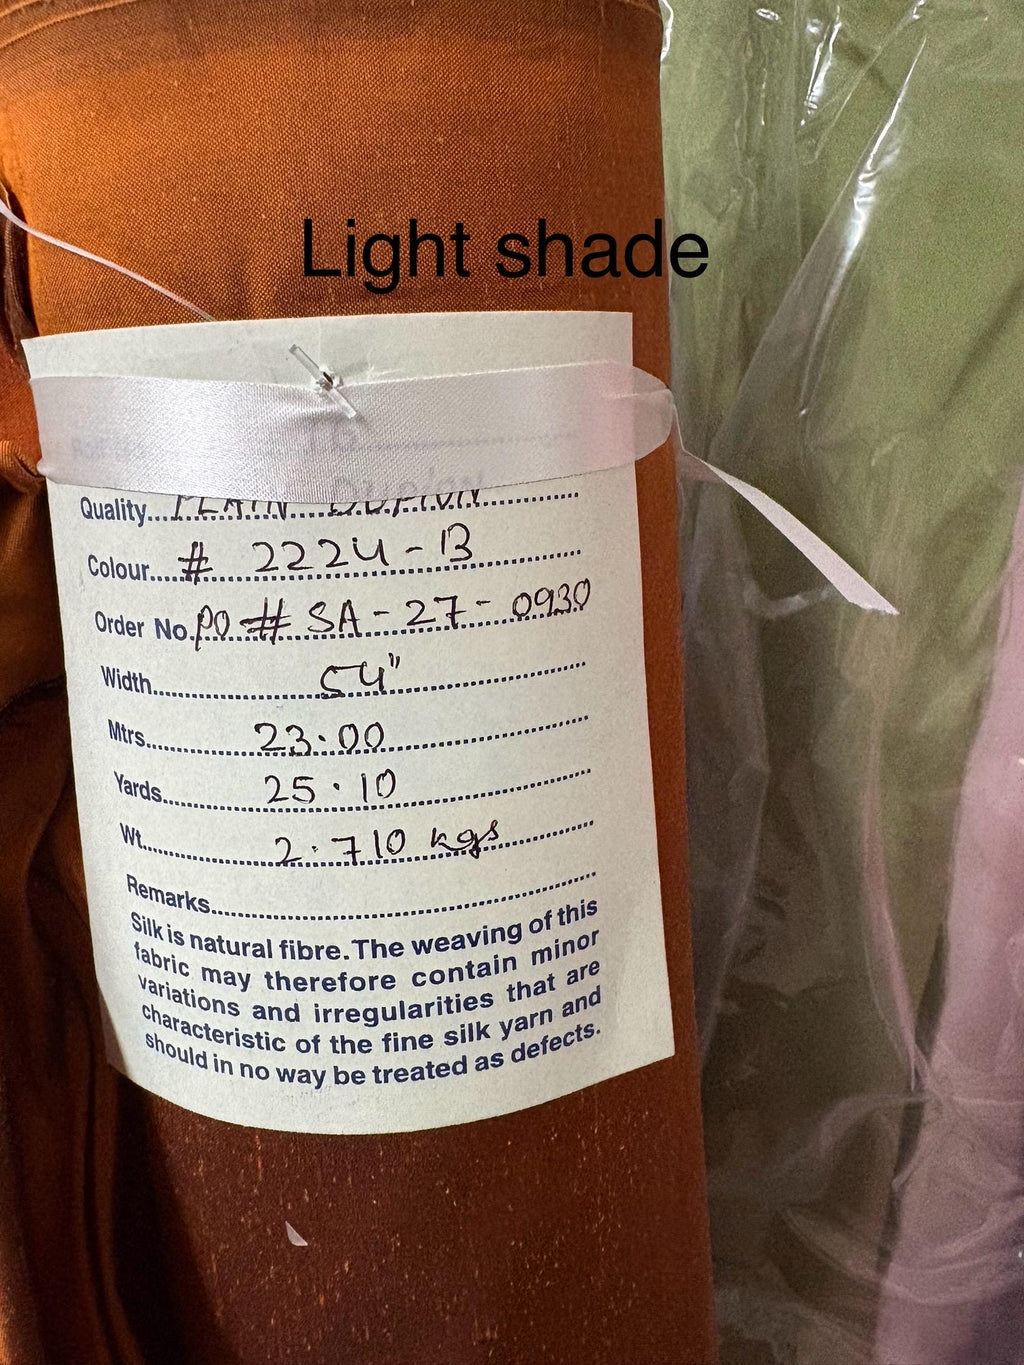 Light shade
Quality....PLAIN DUPION
Colour....# 2224-B
Order No.PO # SA-27-0930
Width....54"
Mtrs....23.00
Yards....25.10
Wt....2.710 kgs
Remarks....
Silk is natural fibre. The weaving of this
fabric may therefore contain minor
variations and irregularities that are
characteristic of the fine silk yarn and
should in no way be treated as defects.